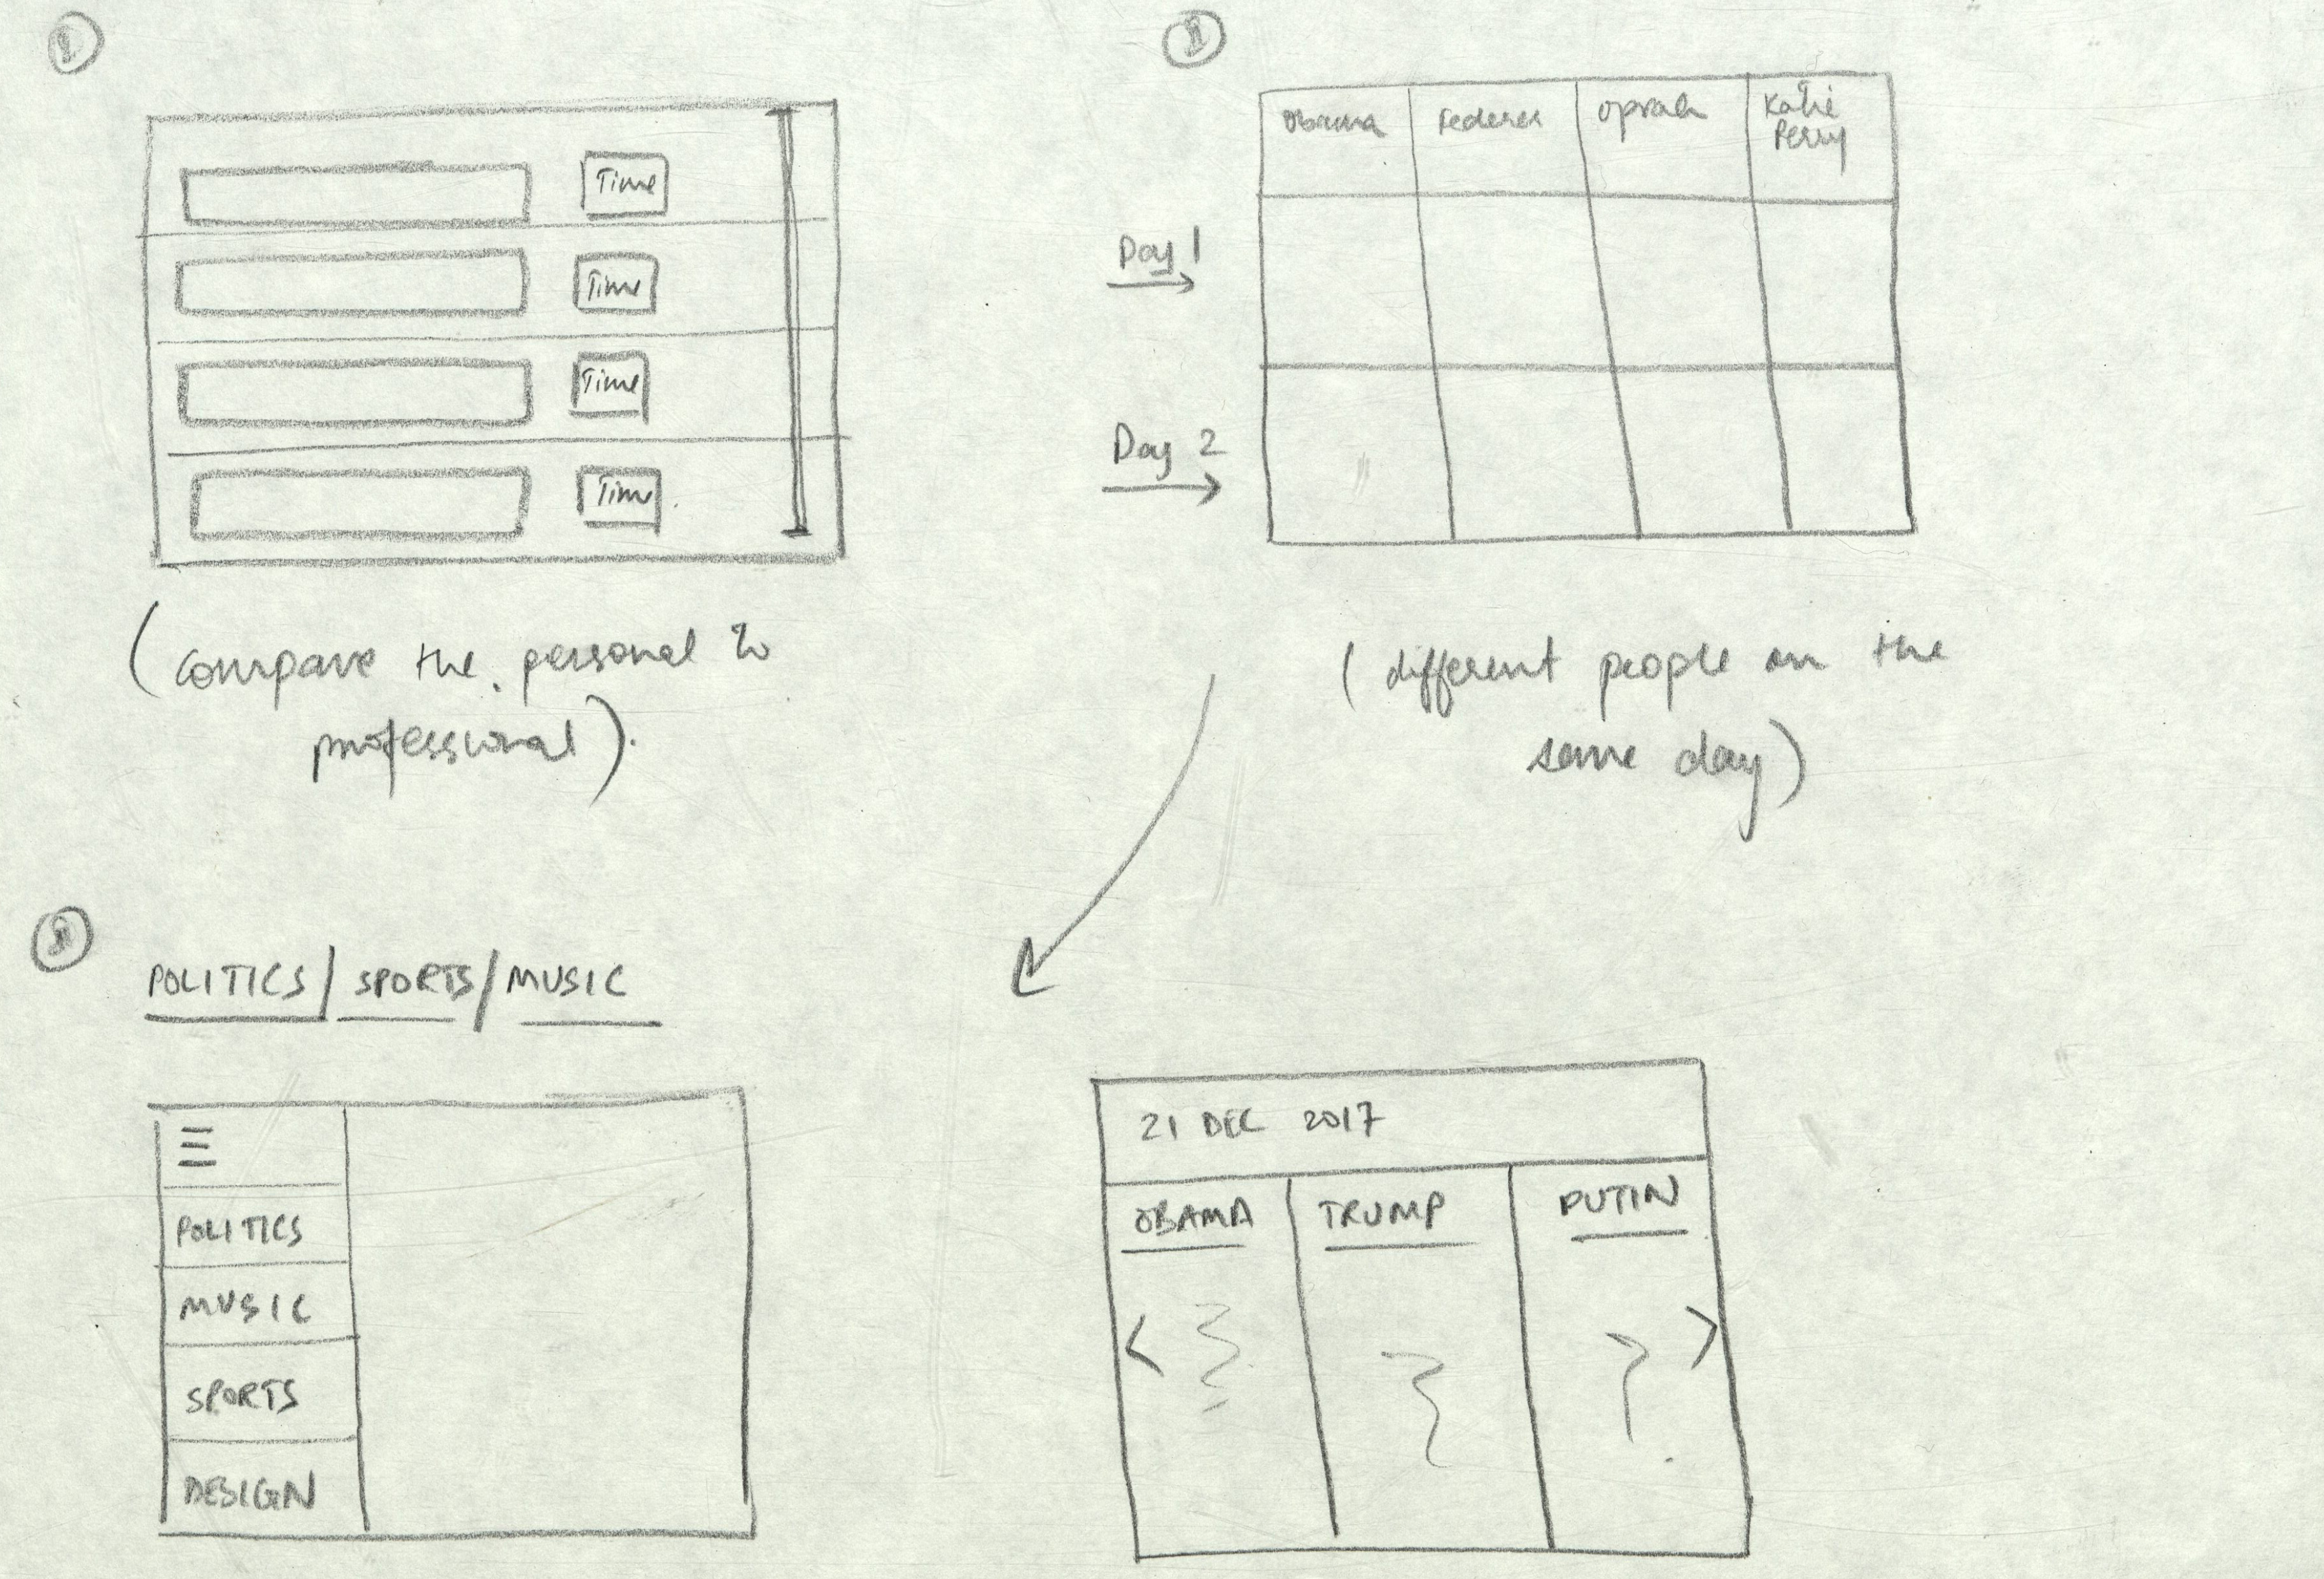 Time
Time
Time
Time
(compare the personal to
professional).
Obama Federer Oprah Katie
Perry
Day 1
Day 2
(different people on the
same day)
POLITICS/SPORTS/MUSIC
POLITICS
MUSIC
SPORTS
DESIGN
21 DEC 2017
OBAMA TRUMP PUTIN